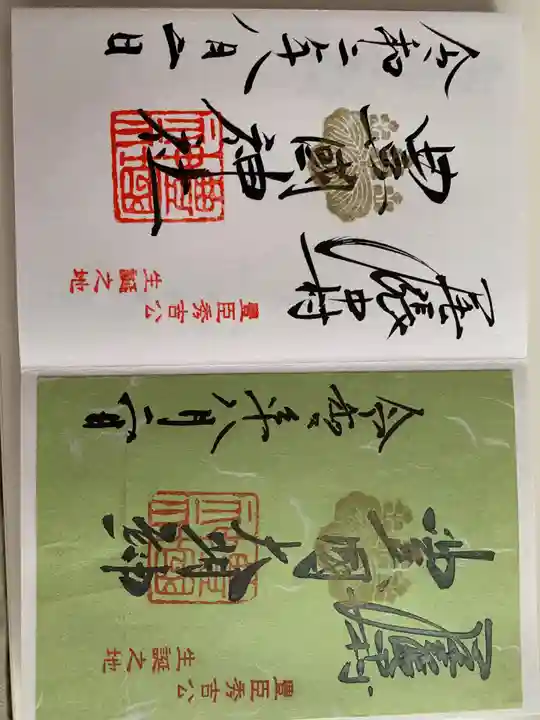 尾張中村
豊國神社
豊臣秀吉公
生誕之地
令和二年八月二日
尾張中村
豊国大明神
豊臣秀吉公
生誕之地
令和二年八月二日